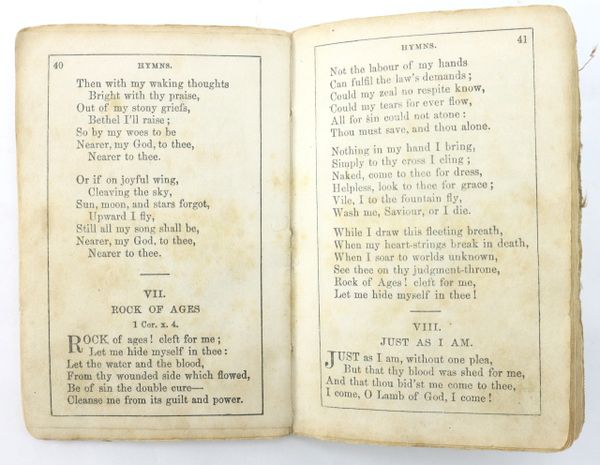 40
HYMNS.
Then with my waking thoughts
Bright with thy praise,
Out of my stony griefs,
Bethel I'll raise;
So by my woes to be
Nearer, my God, to thee,
Nearer to thee.
Or if on joyful wing,
Cleaving the sky,
Sun, moon, and stars forgot,
Upward I fly,
Still all my song shall be,
Nearer, my God, to thee,
Nearer to thee.
VII.
ROCK OF AGES
1 Cor. x. 4.
ROCK of ages! cleft for me;
Let me hide myself in thee:
Let the water and the blood,
From thy wounded side which flowed,
Be of sin the double cure—
Cleanse me from its guilt and power.
HYMNS.
41
Not the labour of my hands
Can fulfil the law's demands;
Could my zeal no respite know,
Could my tears for ever flow,
All for sin could not atone:
Thou must save, and thou alone.
Nothing in my hand I bring,
Simply to thy cross I cling;
Naked, come to thee for dress,
Helpless, look to thee for grace;
Vile, I to the fountain fly,
Wash me, Saviour, or I die.
While I draw this fleeting breath,
When my heart-strings break in death,
When I soar to worlds unknown,
See thee on thy judgment-throne,
Rock of Ages! cleft for me,
Let me hide myself in thee!
VIII.
JUST AS I AM.
JUST as I am, without one plea,
But that thy blood was shed for me,
And that thou bid'st me come to thee,
I come, O Lamb of God, I come!